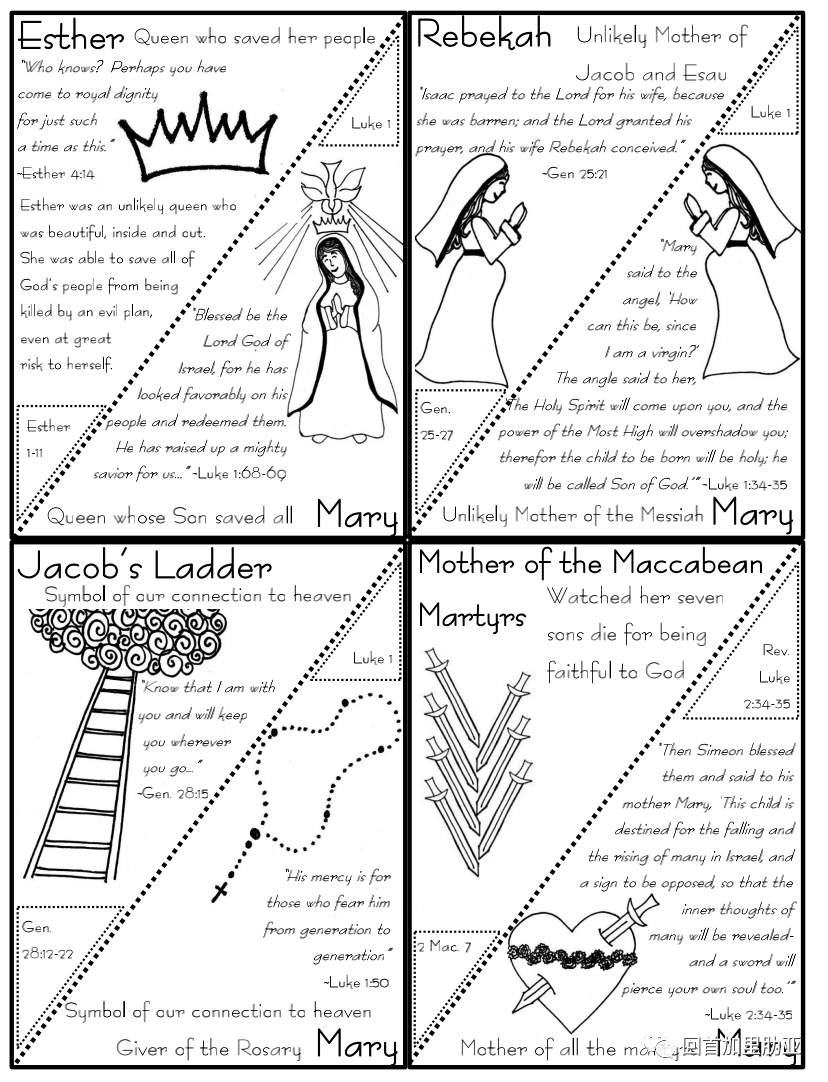 Esther Queen who saved her people
"Who knows? Perhaps you have
come to royal dignity
for just such
a time as this."
~Esther 4:14
Luke 1
Esther was an unlikely queen who
was beautiful, inside and out.
She was able to save all of
God's people from being
killed by an evil plan,
even at great
risk to herself.
Esther
1-11
"Blessed be the
Lord God of
Israel, for he has
looked favorably on his
people and redeemed them.
He has raised up a mighty
savior for us..." ~Luke 1:68-69
Queen whose Son saved all Mary
Rebekah Unlikely Mother of
Jacob and Esau
"Isaac prayed to the Lord for his wife, because
she was barren; and the Lord granted his
prayer, and his wife Rebekah conceived."
~Gen 25:21
Luke 1
"Mary
said to the
angel, 'How
can this be, since
I am a virgin?'
The angle said to her,
Gen.
25-27
'The Holy Spirit will come upon you, and the
power of the Most High will overshadow you;
therefor the child to be born will be holy; he
will be called Son of God.'" ~Luke 1:34-35
Unlikely Mother of the Messiah Mary
Jacob's Ladder
Symbol of our connection to heaven
Luke 1
"Know that I am with
you and will keep
you wherever
you go..."
~Gen. 28:15
"His mercy is for
those who fear him
from generation to
generation"
~Luke 1:50
Gen.
28:12-22
Symbol of our connection to heaven
Giver of the Rosary Mary
Mother of the Maccabean
Martyrs
Watched her seven
sons die for being
faithful to God
Rev.
Luke
2:34-35
"Then Simeon blessed
them and said to his
mother Mary, 'This child is
destined for the falling and
the rising of many in Israel, and
a sign to be opposed, so that the
inner thoughts of
many will be revealed-
and a sword will
pierce your own soul too.'"
~Luke 2:34-35
2 Mac. 7
Mother of all the Mary
回首加里肋亚